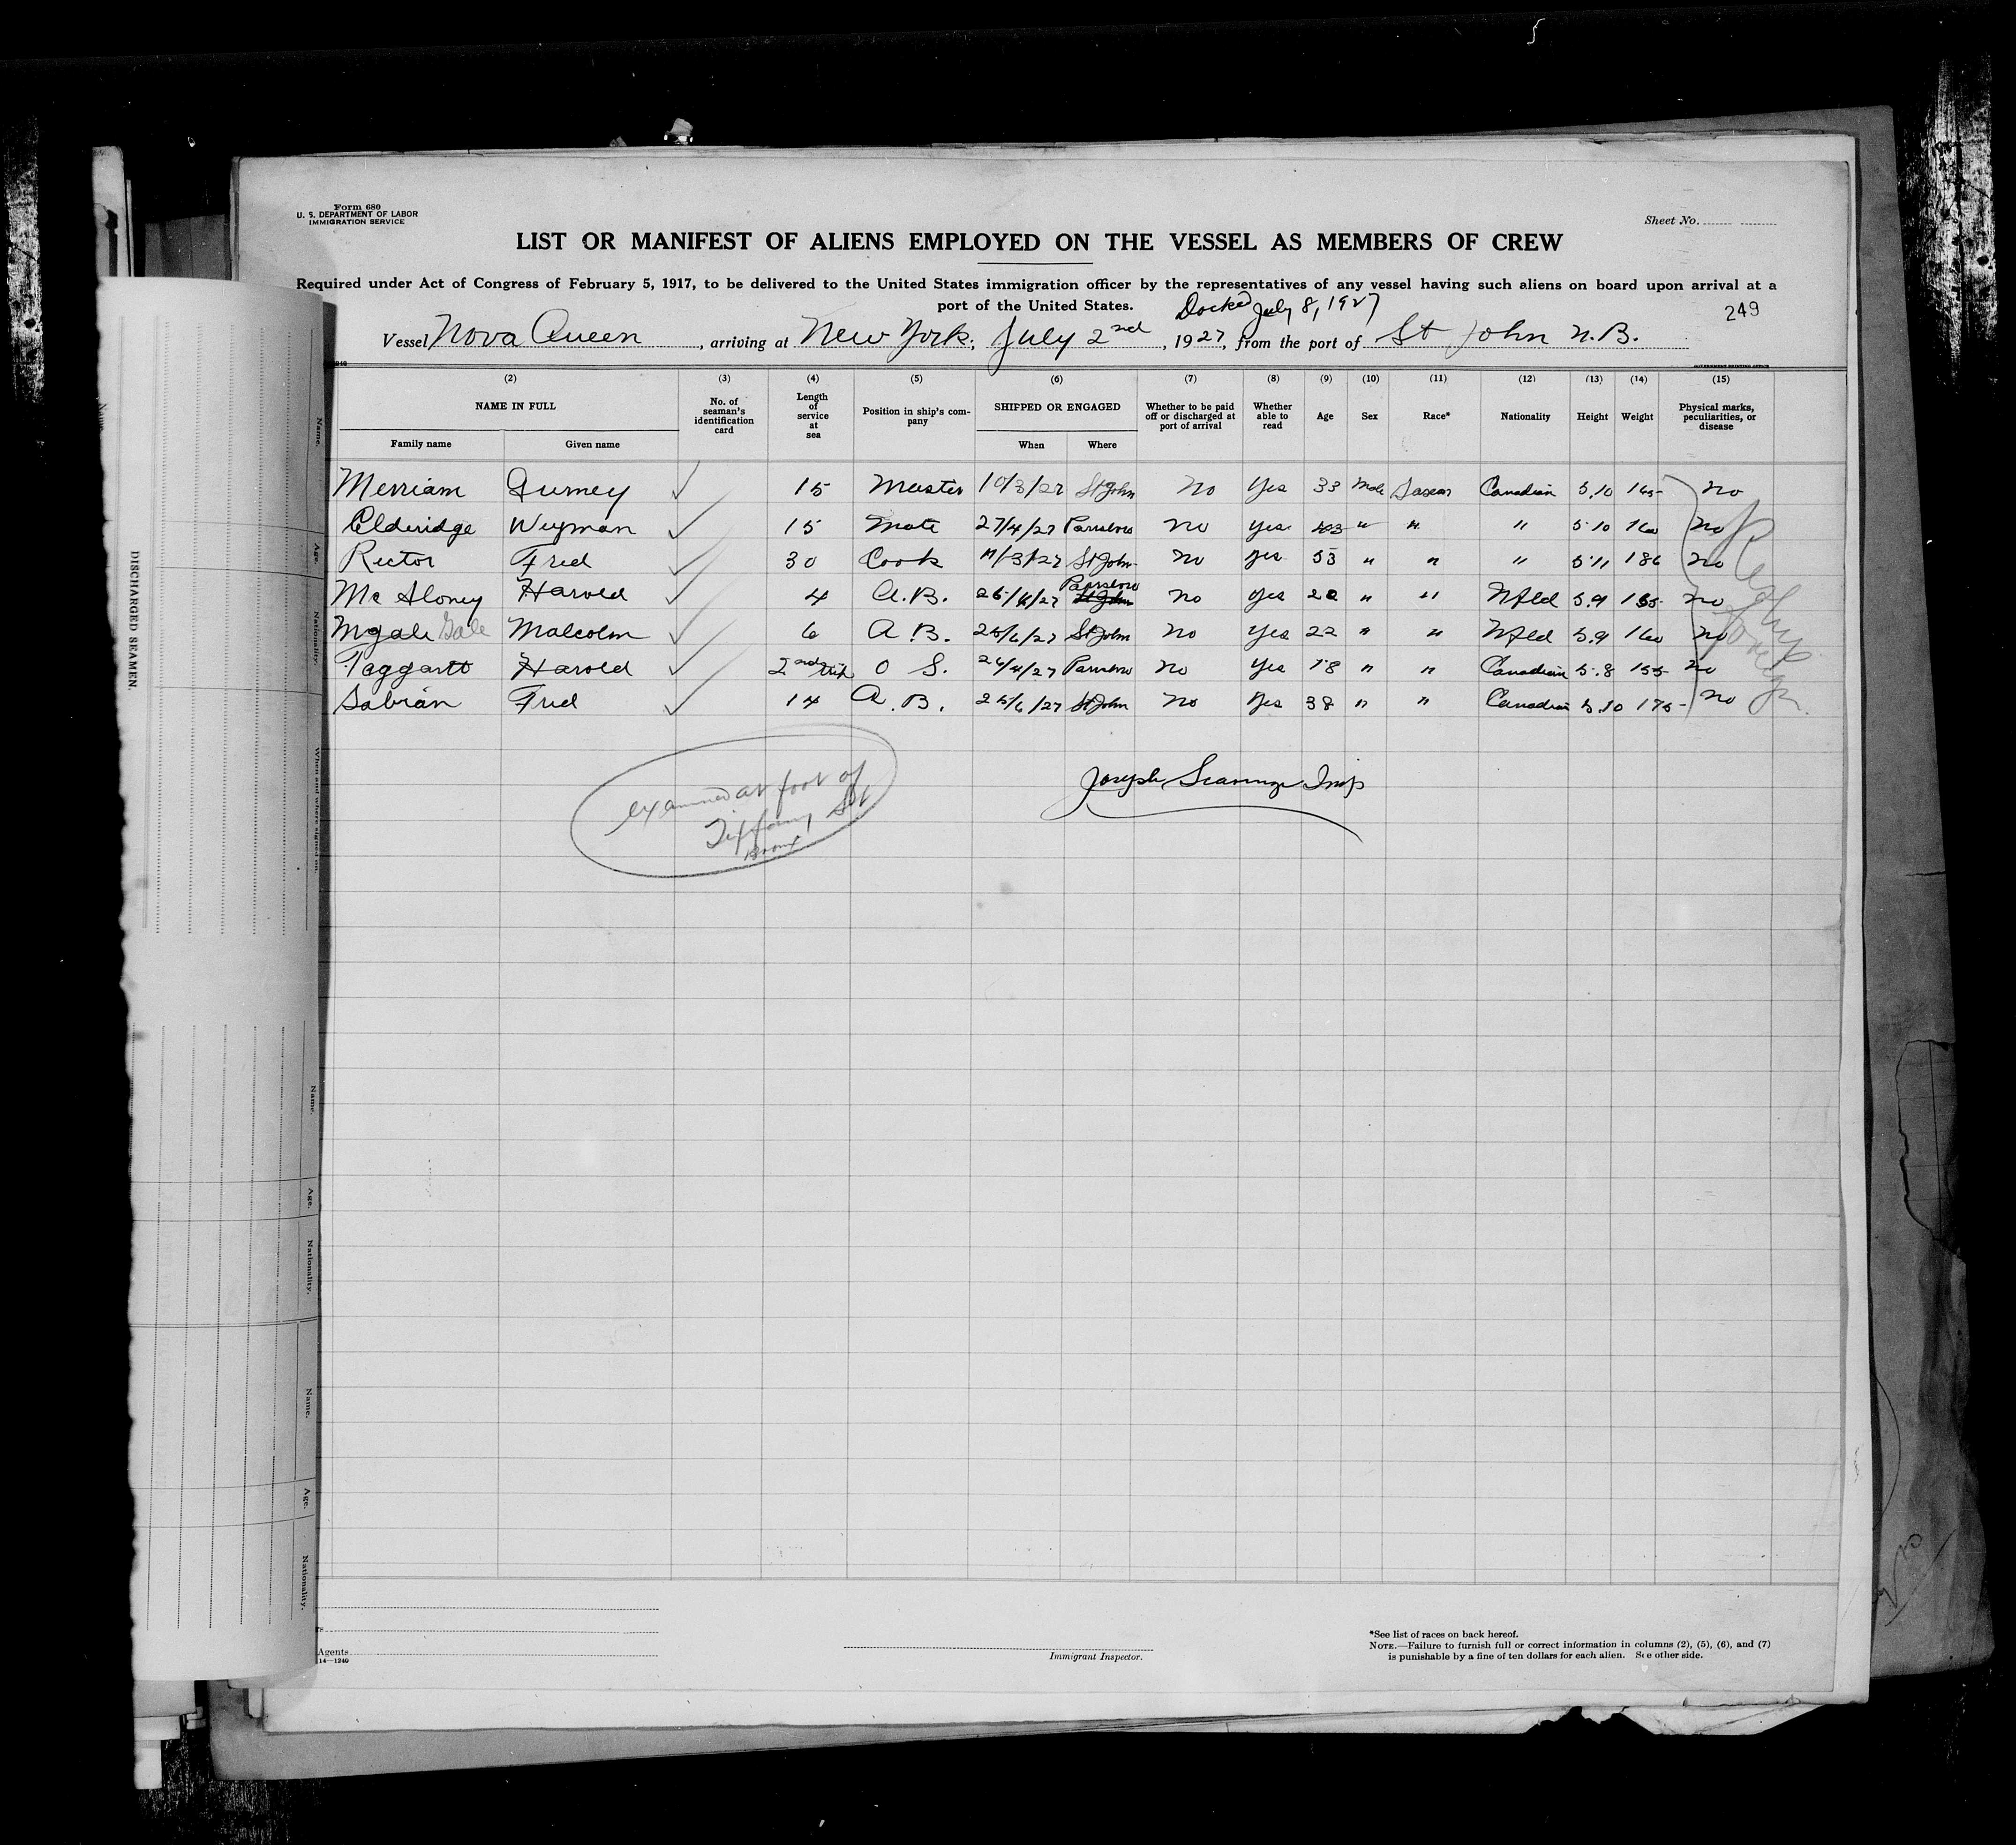 Form 680
U. S. DEPARTMENT OF LABOR
IMMIGRATION SERVICE
Sheet No.
LIST OR MANIFEST OF ALIENS EMPLOYED ON THE VESSEL AS MEMBERS OF CREW
Required under Act of Congress of February 5, 1917, to be delivered to the United States immigration officer by the representatives of any vessel having such aliens on board upon arrival at a
port of the United States.
Docked July 8, 1927
249
Vessel Nova Queen, arriving at New York, July 2nd, 1927, from the port of St John N.B.
GOVERNMENT PRINTING OFFICE
(2) (3) (4) (5) (6) (7) (8) (9) (10) (11) (12) (13) (14) (15)
NAME IN FULL No. of seaman's identification card Length of service at sea Position in ship's company SHIPPED OR ENGAGED Whether to be paid off or discharged at port of arrival Whether able to read Age Sex Race* Nationality Height Weight Physical marks, peculiarities, or disease
Family name Given name When Where
Merriam Gurney ✓ 15 Master 10/3/27 St John No Yes 33 Male Canadian 5.10 165 No
Elderidge Weyman ✓ 15 Mate 27/4/27 Parrsboro No Yes 43 " " " 5.10 160 No
Rector Fred ✓ 30 Cook 11/3/27 St John No Yes 53 " " " 5.11 186 No
McAloney Harold ✓ 4 A.B. Parrsboro St John No Yes 22 " " Nfld 5.9 No
Mgale Gale Malcolm ✓ 6 A.B. 25/6/27 St John No Yes 22 " " Nfld 5.9 160 No
Taggartt Harold ✓ 2nd trip O S. Parrsboro No Yes 18 " " Canadian 5.8 155 No
Sabrian Fred ✓ 14 A.B. 25/6/27 St John No Yes 38 " " Canadian 5.10 175 No
Reship foreign
examined at foot of
Tiffany St
Bronx
Joseph Insp
DISCHARGED SEAMEN.
Name.
Age.
Nationality.
When and where signed on.
Name.
Age.
Nationality.
Name.
Age.
Nationality.
Agents
14—1240
Immigrant Inspector.
*See list of races on back hereof.
NOTE.—Failure to furnish full or correct information in columns (2), (5), (6), and (7)
is punishable by a fine of ten dollars for each alien. See other side.